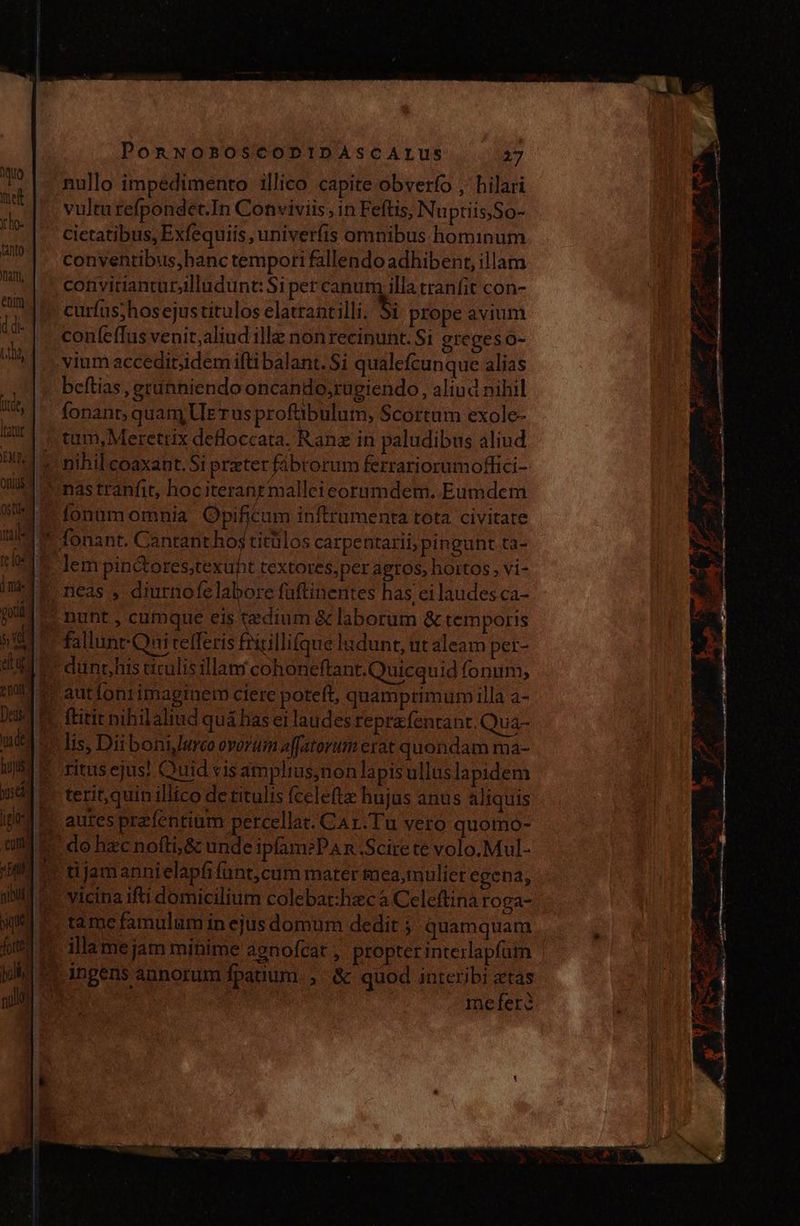 PORNOBOSCODIDASCALUS 27
nullo impedimento illico capite obverſo, hilari
vultu reſpondet. In Conviviis, in Feſtis, Nuptiis, So-
cietatibus, Exſequiis, univerſis omnibus hominum
conventibus, hanc tempori fallendo adhibent, illam
convitiantur, illudunt: Si per canum illa tranſit con-
curſus; hos ejus titulos elatrant illi. Si prope avium
conſeſſus venit, aliud illæ non recinunt. Si greges o-
vium accedit, idem iſti balant. Si qualeſcunque alias
beſtias, grunniendo oncando, rugiendo, aliud nihil
ſonant, quam Uetus proſtibulum, Scortum exole-
tum, Meretrix defloccata. Ranæ in paludibus aliud
nihil coaxant. Si præter fabrorum ferrariorum offici-
nas tranſit, hoc iterant mallei eorumdem. Eumdem
ſonum omnia Opificum inſtrumenta tota civitate
ſonant. Cantant hos titulos carpentarii, pingunt ta-
lem pinctores, texunt textores, per agros, hortos, vi-
neas, diurno ſe labore ſuſtinentes has ei laudes ca-
nunt, cumque eis tædium & laborum & temporis
fallunt. Qui teſſeris fritilliſque ludunt, ut aleam per-
dunt, his titulis illam cohoneſtant. Quicquid ſonum,
aut ſoni imaginem ciere poteſt, quamprimum illa a-
ſtitit nihil aliud quá has ei laudes repræſentant. Qua-
lis, Dii boni, lurco ovorum aſſatorum erat quondam ma-
ritus ejus! Quid vis amplius, non lapis ullus lapidem
terit, quin illico de titulis ſceleſtæ hujus anus aliquis
aures præſentium percellat. CAL. Tu vero quomo-
do hæc noſti, & unde ipſam? PAR. Scire te volo. Mul-
ti jam anni elapſi ſunt, cum mater mea, mulier egena,
vicina iſti domicilium colebat: hæc á Celeſtina roga-
ta me famulum in ejus domum dedit; quamquam
illa me jam minime agnoſcat, propter interlapſum
ingens annorum ſpatium, & quod interibi ætas
me fere